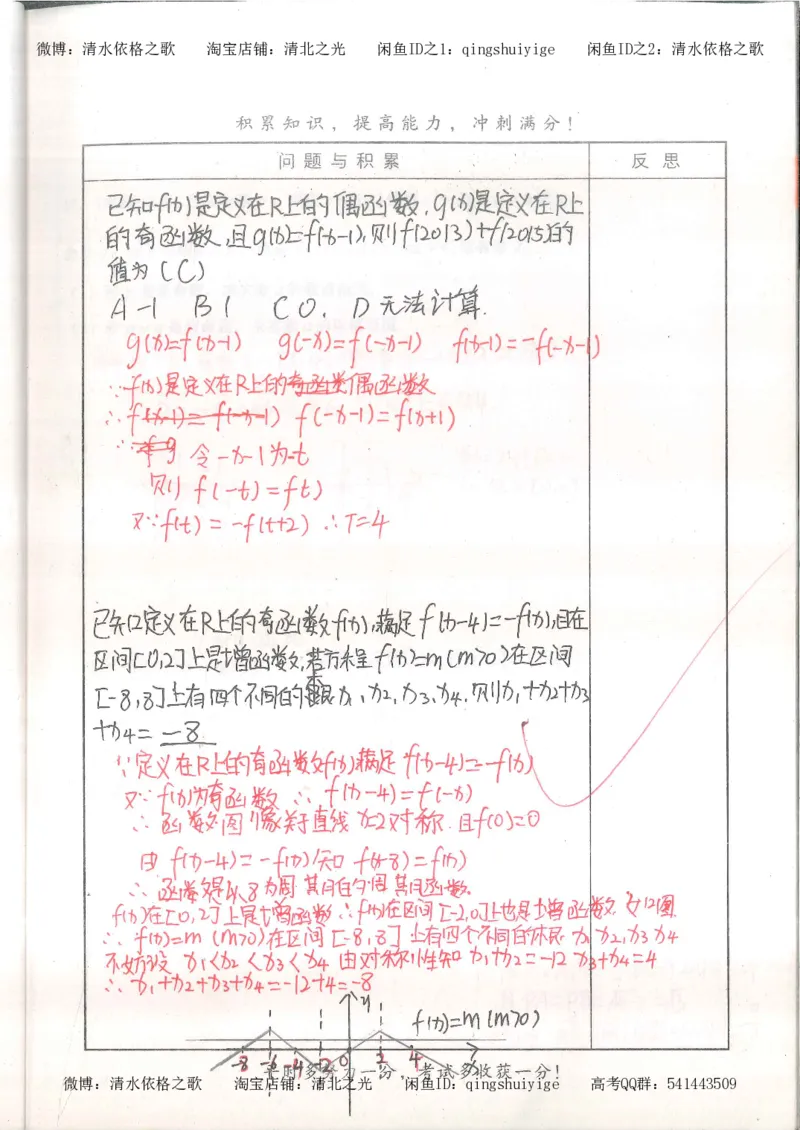 微博：清水依格之歌 淘宝店铺：清北之光 闲鱼ID之1：qingshuiyige 闲鱼ID之2：清水依格之歌
积累知识，提高能力，冲刺满分！
问题与积累 反思
已知f(x)是定义在R上的偶函数，g(x)是定义在R上
的奇函数，且g(x)=f(x-1)，则f(2013)+f(2015)的
值为（C）
A -1 B 1 C 0. D 无法计算.
g(x)=f(x-1) g(-x)=f(-x-1) f(x-1)=-f(-x-1)
∵f(x)是定义在R上的奇函数偶函数
∴f(x-1)=f(-x-1) f(-x-1)=f(x+1)
令-x-1为-t
则f(-t)=f(t)
又∵f(t)=-f(t+2) ∴T=4
已知定义在R上的奇函数f(x),满足f(x-4)=-f(x),且在
区间[0,2]上是增函数,若方程f(x)=m(m>0)在区间
[-8,8]上有四个不同的根x₁、x₂、x₃、x₄,则x₁+x₂+x₃
+x₄=-8
∵定义在R上的奇函数f(x)满足f(x-4)=-f(x)
又∵f(x)为奇函数 ∴f(x-4)=f(-x)
∴函数图像关于直线x=2对称 且f(0)=0
由f(x-4)=-f(x)知f(x-8)=f(x)
∴函数是以8为周期的周期函数.
f(x)在[0,2]上是增函数∴f(x)在区间[-2,0]上也是增函数.如图.
∴f(x)=m(m>0)在区间[-8,8]上有四个不同的根x₁x₂,x₃x₄
不妨设x₁<x₂<x₃<x₄由对称性知x₁+x₂=-12 x₃+x₄=4
∴x₁+x₂+x₃+x₄=-12+4=-8
y
f(x)=m(m>0)
-8 -6 -4 -2 0 2 4 x
平时多努力一分，考试多收获一分！
微博：清水依格之歌 淘宝店铺：清北之光 闲鱼ID：qingshuiyige 高考QQ群：541443509